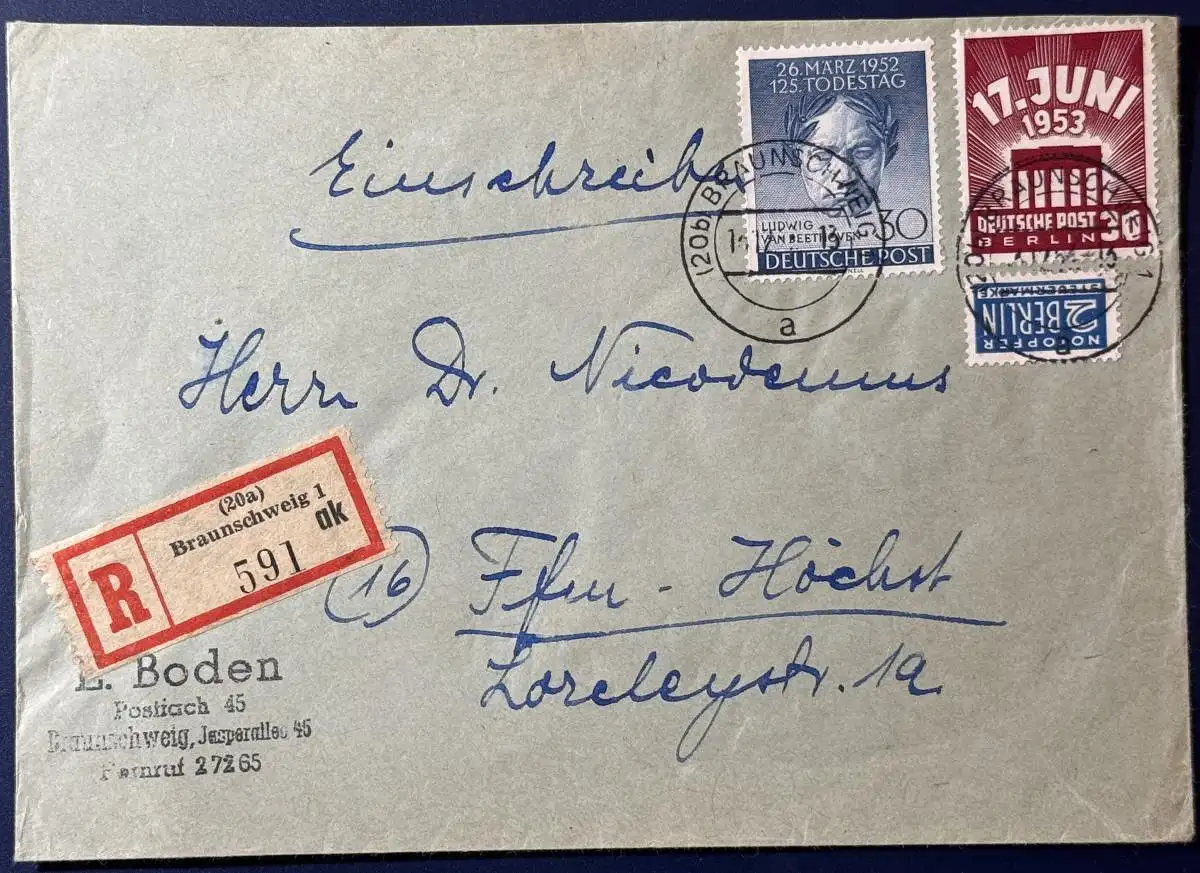 26. MÄRZ 1952
125. TODESTAG
LUDWIG
VAN BEETHOVEN
30
DEUTSCHE POST
17. JUNI
1953
DEUTSCHE POST 30
BERLIN
(20b) BRAUNSCHWEIG
a
BRAUNSCHWEIG 1
a
NOTOPFER
2 BERLIN
STEUERMARKE
Einschreiben
Herrn Dr. Nicodemus
(16) Ffm - Höchst
Loreleystr. 1a
(20a)
Braunschweig 1
R 591 ak
E. Boden
Postfach 45
Braunschweig, Jasperallee 45
Fernruf 27265